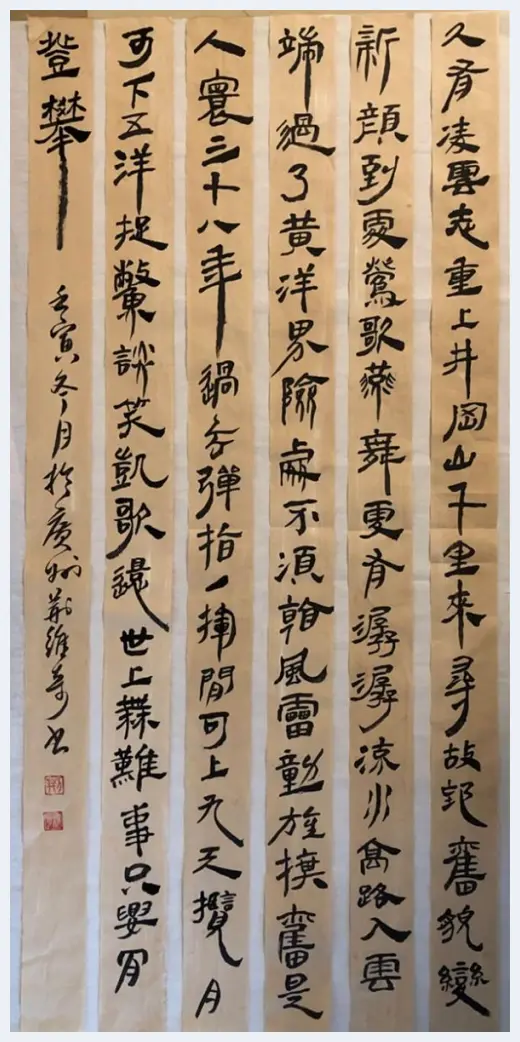 久有凌雲志重上井岡山千里來尋故地舊貌變
新顏到處鶯歌燕舞更有潺潺流水高路入雲
端過了黃洋界險處不須看風雷動旌旗奮是
人寰三十八年過去彈指一揮間可上九天攬月
可下五洋捉鱉談笑凱歌還世上無難事只要肯
登攀
壬寅冬月於廣州荊維奇書